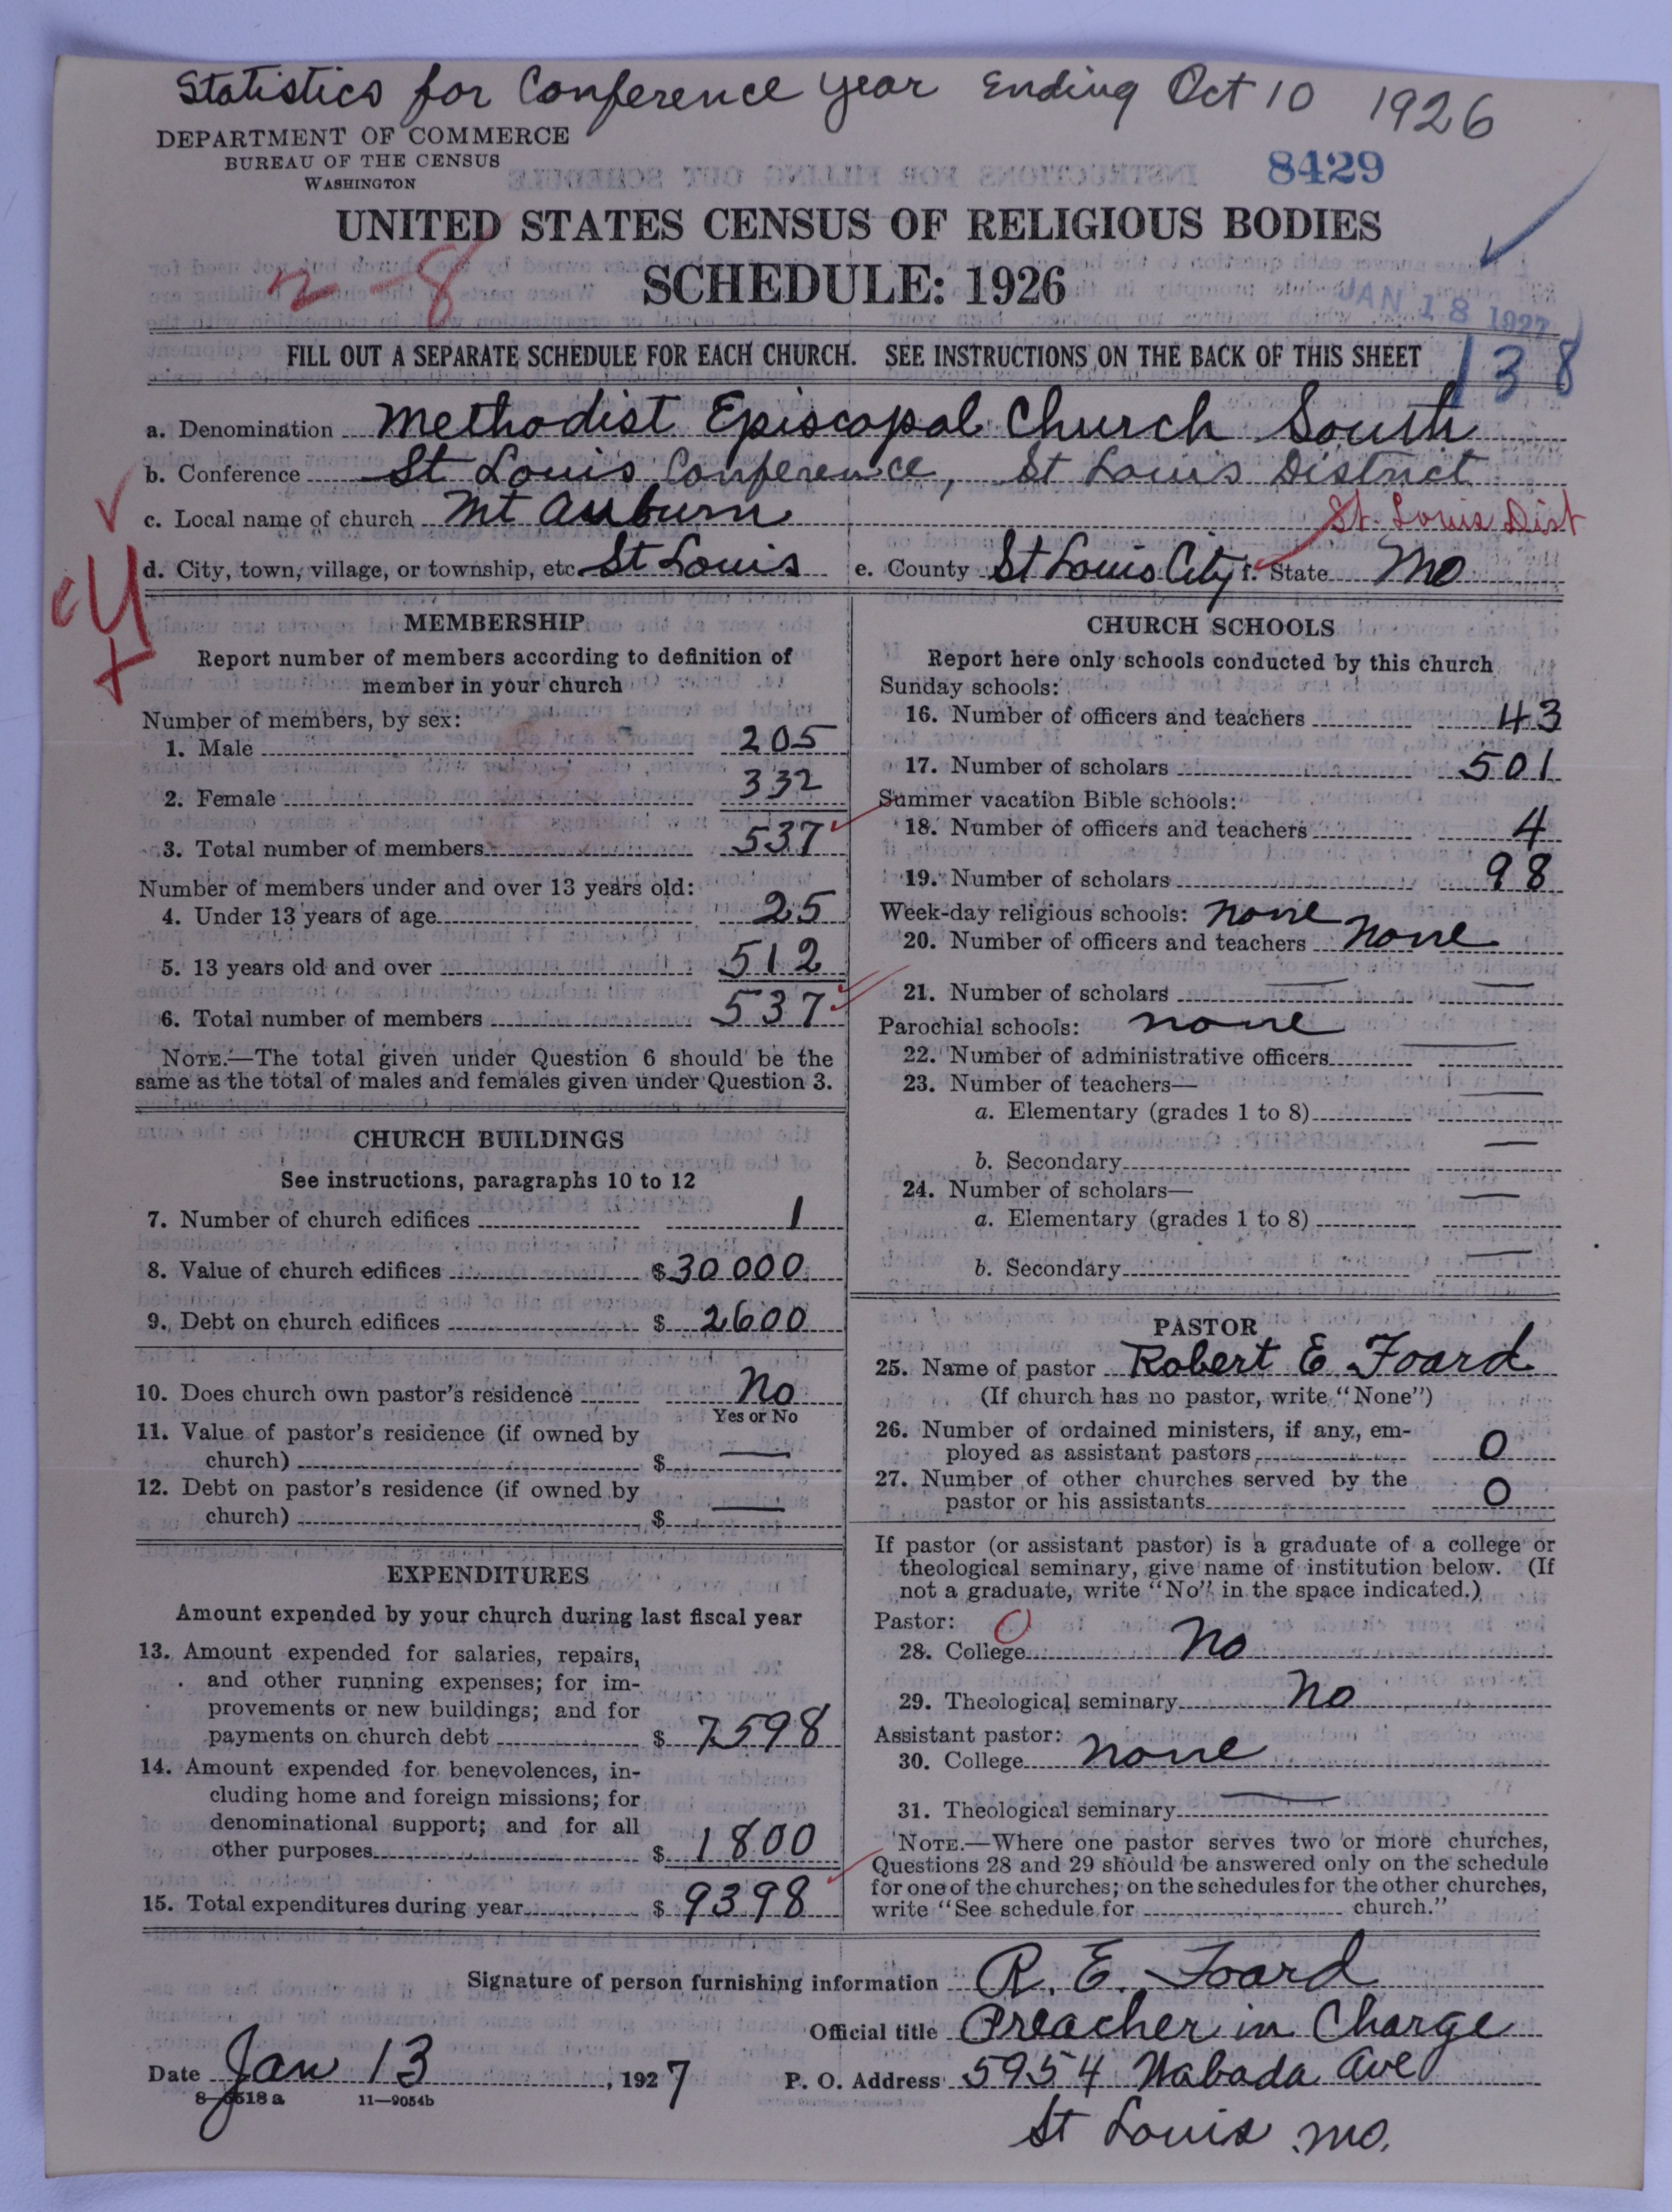 Statistics for Conference year Ending Oct 10 1926
DEPARTMENT OF COMMERCE
BUREAU OF THE CENSUS
WASHINGTON
8429
UNITED STATES CENSUS OF RELIGIOUS BODIES
2-8
SCHEDULE: 1926
JAN 18 1927
FILL OUT A SEPARATE SCHEDULE FOR EACH CHURCH. SEE INSTRUCTIONS ON THE BACK OF THIS SHEET
138
a. Denomination Methodist Episcopal Church South
b. Conference St Louis Conference, St Louis District
c. Local name of church Mt Auburn
St. Louis Dist
d. City, town, village, or township, etc. St Louis e. County St Louis City f. State Mo
MEMBERSHIP
Report number of members according to definition of
member in your church
Number of members, by sex:
1. Male 205
2. Female 332
3. Total number of members 537
Number of members under and over 13 years old:
4. Under 13 years of age 25
5. 13 years old and over 512
6. Total number of members 537
NOTE.—The total given under Question 6 should be the
same as the total of males and females given under Question 3.
CHURCH BUILDINGS
See instructions, paragraphs 10 to 12
7. Number of church edifices 1
8. Value of church edifices $30 000
9. Debt on church edifices $ 2600
10. Does church own pastor's residence No
Yes or No
11. Value of pastor's residence (if owned by
church) $ —
12. Debt on pastor's residence (if owned by
church) $ —
EXPENDITURES
Amount expended by your church during last fiscal year
13. Amount expended for salaries, repairs,
and other running expenses; for im-
provements or new buildings; and for
payments on church debt $ 7598
14. Amount expended for benevolences, in-
cluding home and foreign missions; for
denominational support; and for all
other purposes $ 1800
15. Total expenditures during year $ 9398
CHURCH SCHOOLS
Report here only schools conducted by this church
Sunday schools:
16. Number of officers and teachers 43
17. Number of scholars 501
Summer vacation Bible schools:
18. Number of officers and teachers 4
19. Number of scholars 98
Week-day religious schools: none
20. Number of officers and teachers none
21. Number of scholars —
Parochial schools: none
22. Number of administrative officers —
23. Number of teachers—
a. Elementary (grades 1 to 8) —
b. Secondary —
24. Number of scholars—
a. Elementary (grades 1 to 8) —
b. Secondary —
PASTOR
25. Name of pastor Robert E Foard
(If church has no pastor, write "None")
26. Number of ordained ministers, if any, em-
ployed as assistant pastors 0
27. Number of other churches served by the
pastor or his assistants 0
If pastor (or assistant pastor) is a graduate of a college or
theological seminary, give name of institution below. (If
not a graduate, write "No" in the space indicated.)
Pastor: 0
28. College No
29. Theological seminary No
Assistant pastor:
30. College none
31. Theological seminary —
NOTE.—Where one pastor serves two or more churches,
Questions 28 and 29 should be answered only on the schedule
for one of the churches; on the schedules for the other churches,
write "See schedule for church."
Signature of person furnishing information R. E. Foard
Official title Preacher in Charge
Date Jan 13, 1927 P. O. Address 5954 Wabada Ave
8—6518 a 11—9054b
St Louis Mo.